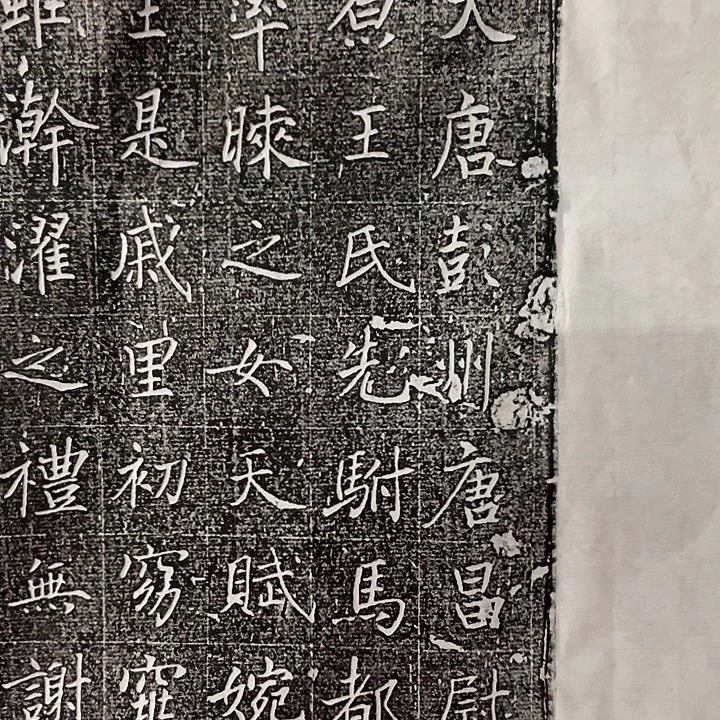 大唐彭州唐昌尉
原王氏先駙馬都
率睞之女天賦婉
是戚里初窈窕
雖澣濯之禮無謝